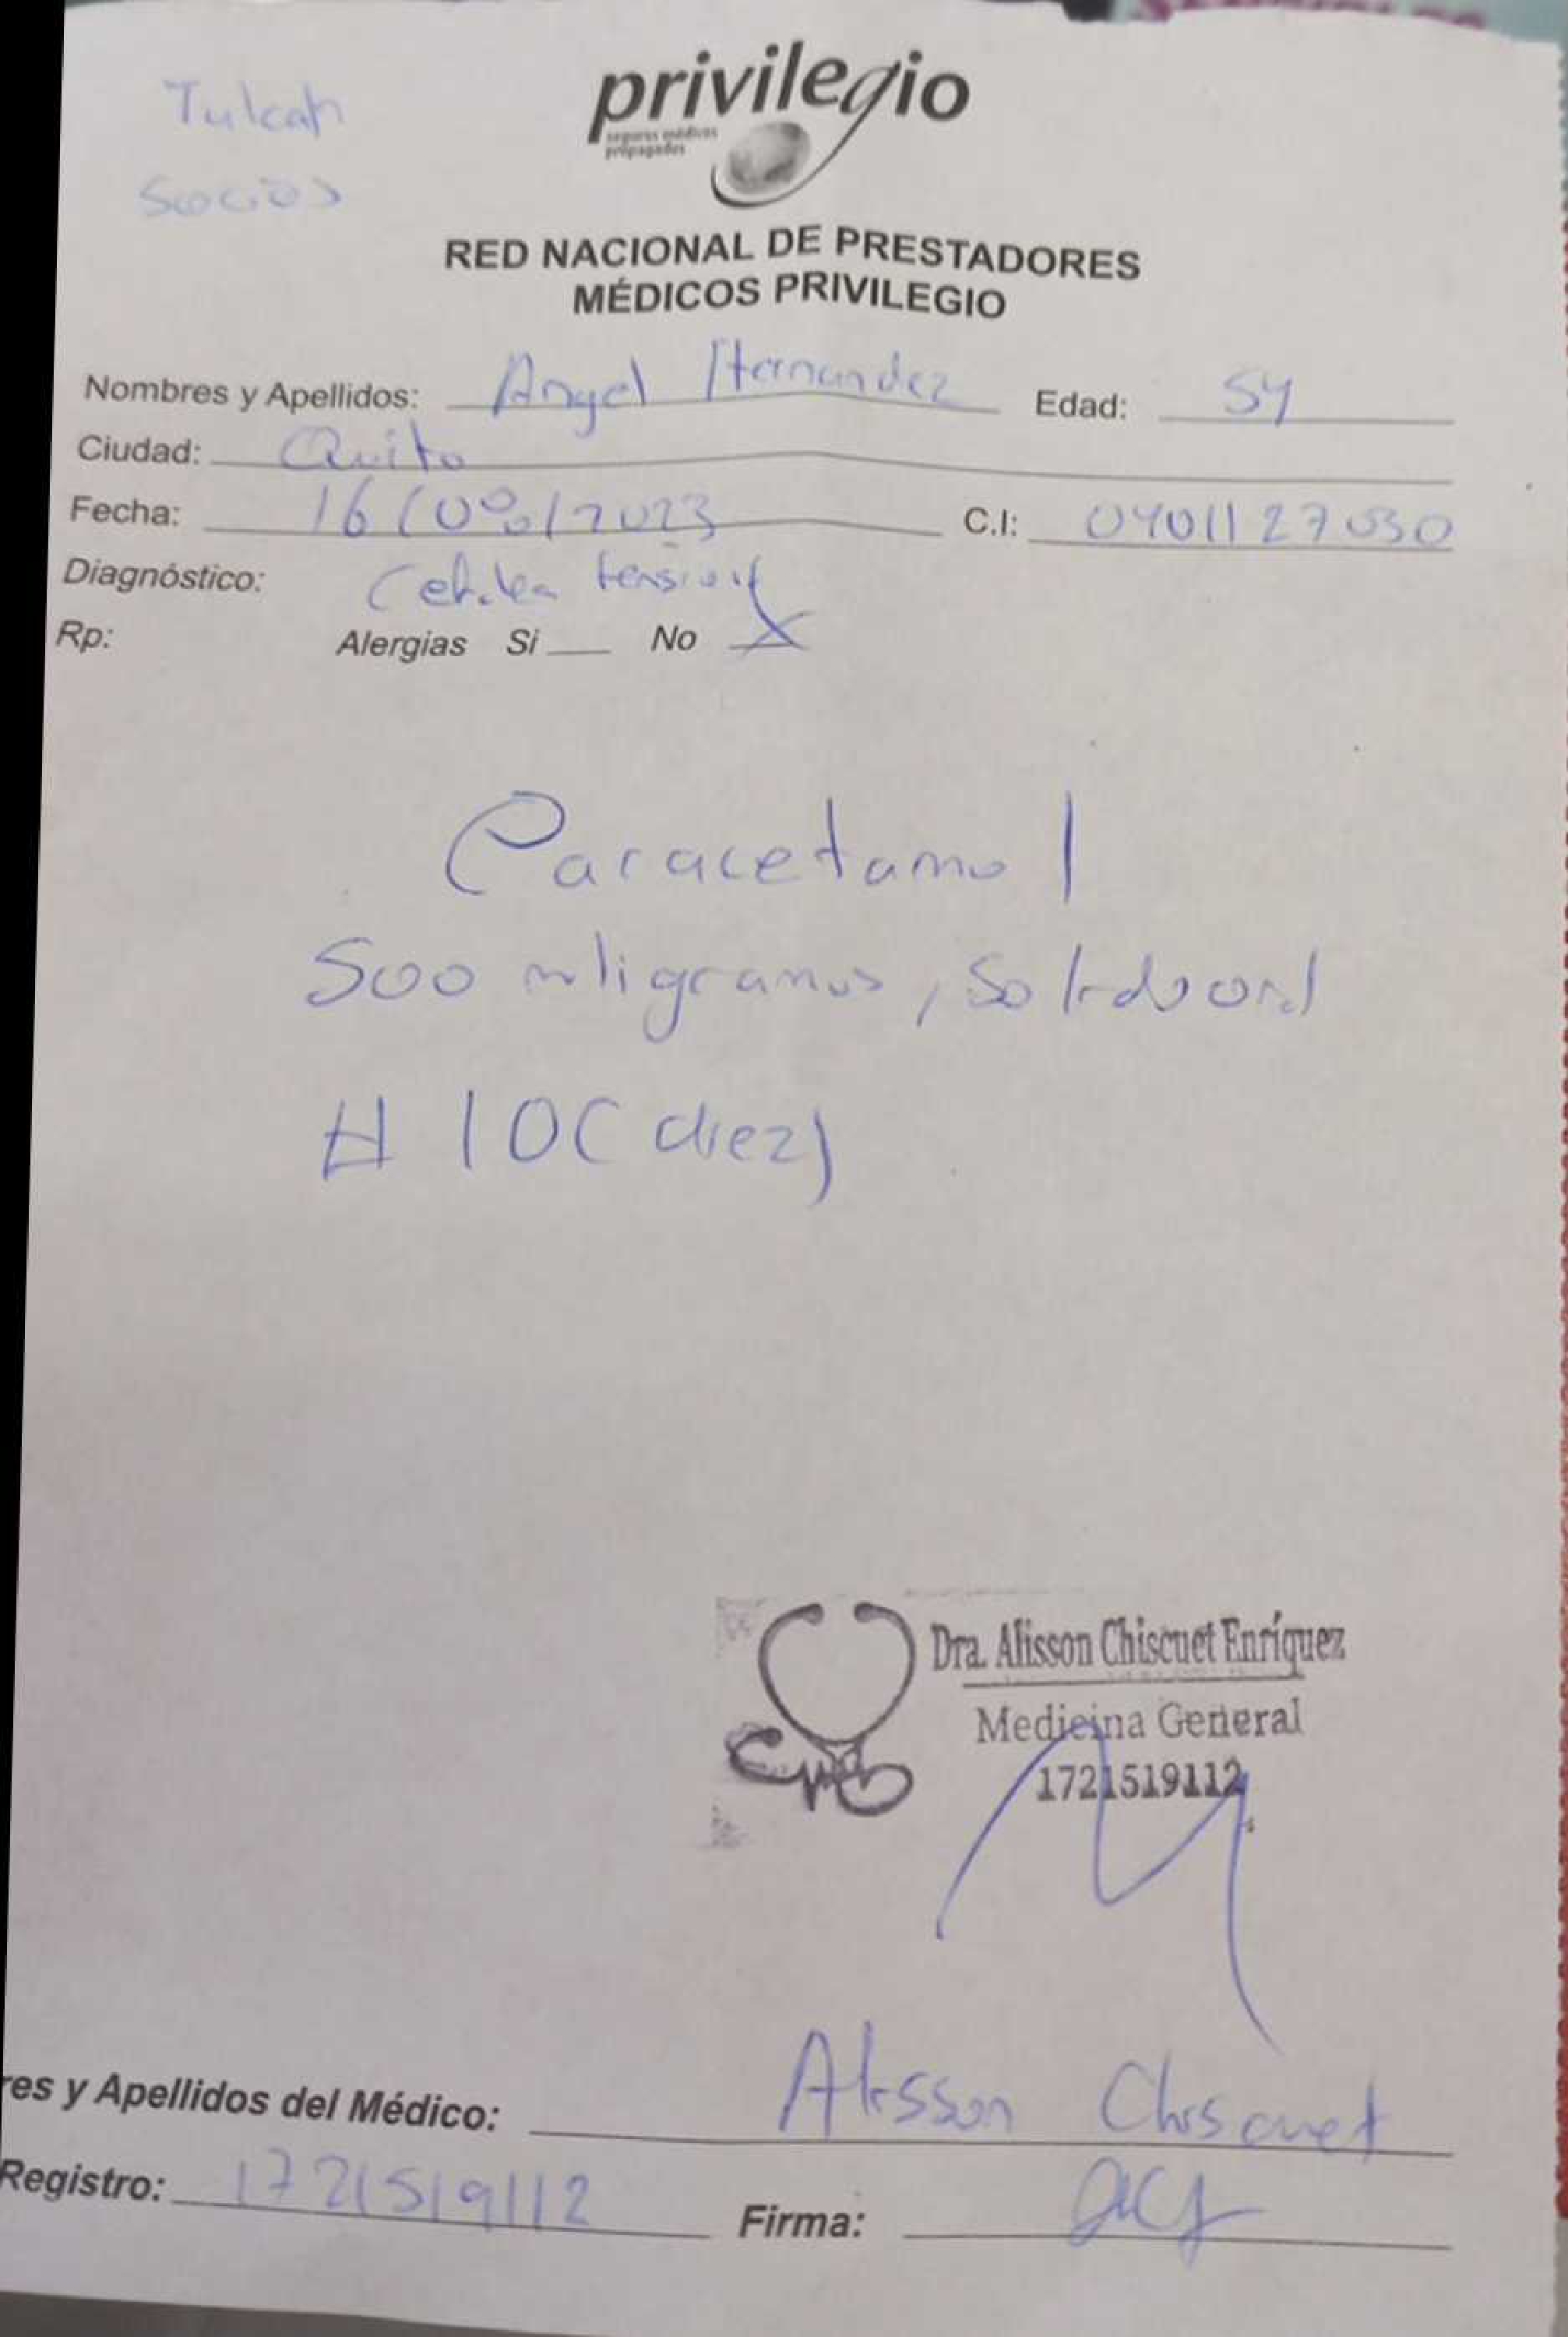 Tulcán
Socios
privilegio
seguros médicos
prepagados
RED NACIONAL DE PRESTADORES
MÉDICOS PRIVILEGIO
Nombres y Apellidos: Angel Hernandez Edad: 54
Ciudad: Quito
Fecha: 16/08/2023 C.I: 0401127030
Diagnóstico: tensional
Rp: Alergias Si No X
Paracetamol
500 miligramos, Solido oral
# 10 (diez)
Dra. Alisson Chiscuet Enríquez
Medicina General
1721519112
res y Apellidos del Médico: Alisson Chiscuet
Registro: 1721519112 Firma: